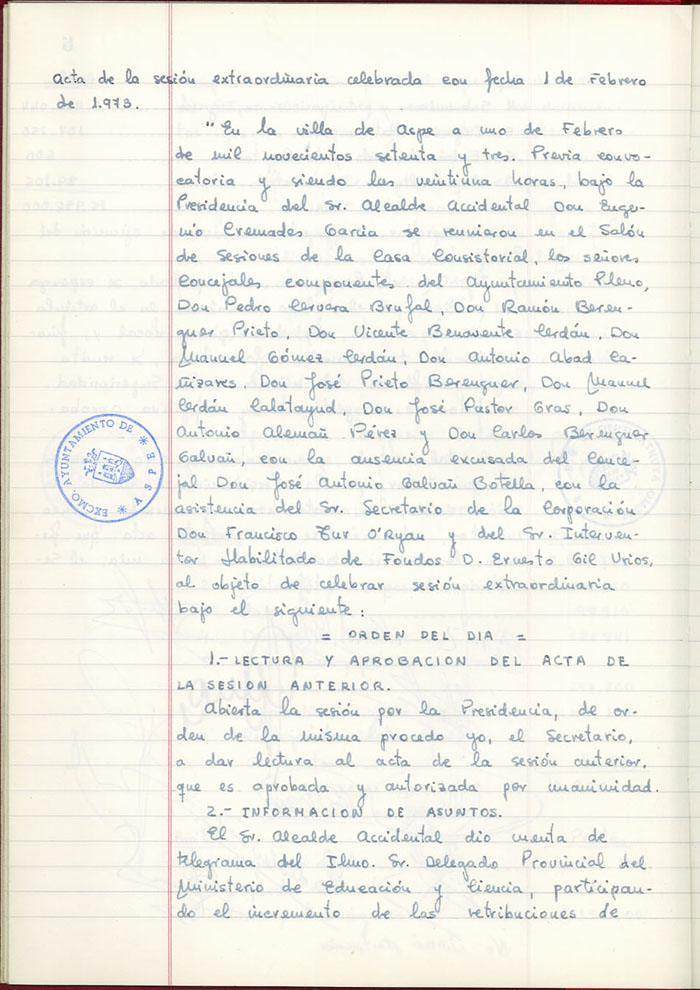 Acta de la sesión extraordinaria celebrada con fecha 1 de Febrero
de 1.973.
"En la villa de Aspe a uno de Febrero
de mil novecientos setenta y tres. Previa convo-
catoria y siendo las veintiuna horas, bajo la
Presidencia del Sr. Alcalde Accidental Don Euge-
nio Cremades Garcia se reunieron en el Salón
de Sesiones de la Casa Consistorial, los señores
Concejales componentes del Ayuntamiento Pleno,
Don Pedro Cervera Brufal, Don Ramón Beren-
guer Prieto, Don Vicente Benavente Cerdán, Don
Manuel Gómez Cerdán, Don Antonio Abad Ca-
ñizares, Don José Prieto Berenguer, Don Manuel
Cerdán Calatayud, Don José Pastor Gras, Don
Antonio Alemañ Pérez y Don Carlos Berenguer
Galvañ, con la ausencia excusada del Conce-
jal Don José Antonio Galvañ Botella, con la
asistencia del Sr. Secretario de la Corporación
Don Francisco Tur O'Ryan y del Sr. Interven-
tor Habilitado de Fondos D. Ernesto Gil Urios,
al objeto de celebrar sesión extraordinaria
bajo el siguiente:
= ORDEN DEL DIA =
1.- LECTURA Y APROBACION DEL ACTA DE
LA SESION ANTERIOR.
Abierta la sesión por la Presidencia, de or-
den de la misma procedo yo, el Secretario,
a dar lectura al acta de la sesión anterior,
que es aprobada y autorizada por unanimidad.
2.- INFORMACION DE ASUNTOS.
El Sr. Alcalde Accidental dio cuenta de
telegrama del Ilmo. Sr. Delegado Provincial del
Ministerio de Educación y Ciencia, participan-
do el incremento de las retribuciones de
EXCMO. AYUNTAMIENTO DE
* ASPE *